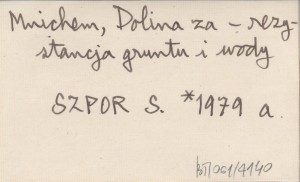 Mnichem, Dolina za – rezy-
stancja gruntu i wody
SZPOR S. *1979 a.
BT/061/4140